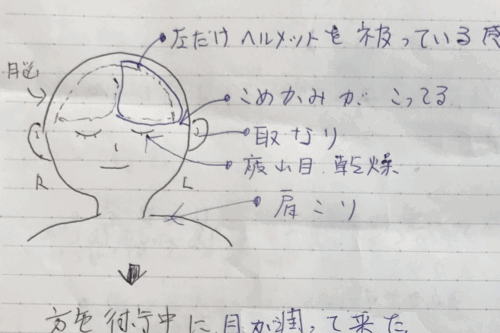 左だけヘルメットを被っている感
脳
こめかみがこってる
耳なり
疲れ目 乾燥
R
L
肩こり
施術中に目が潤って来た